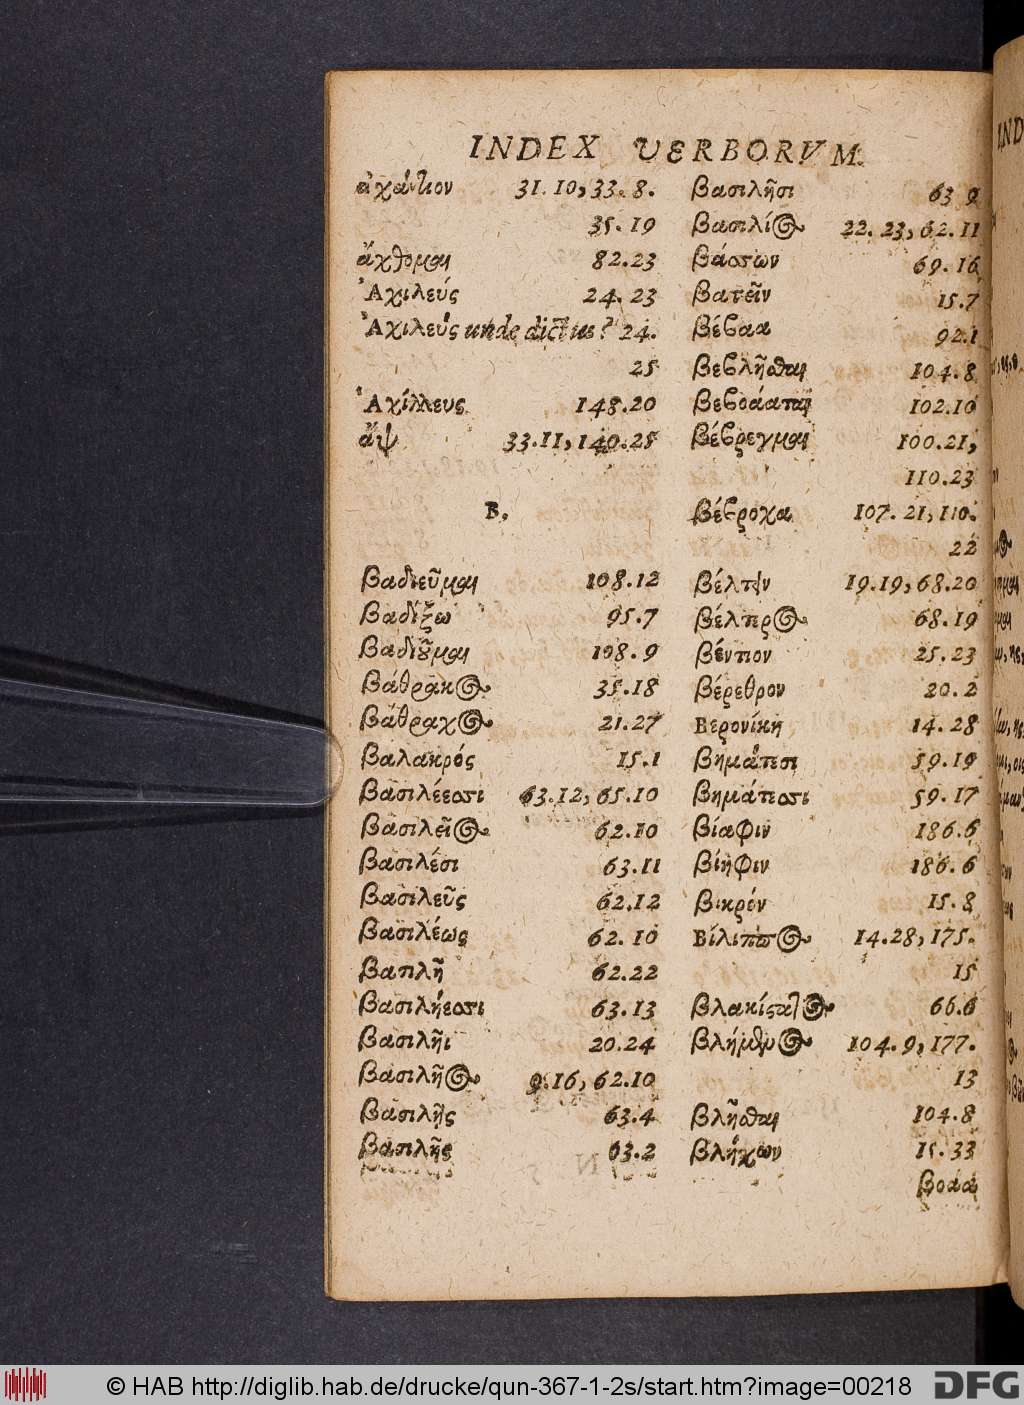 INDEX VERBORVM.
31.10, 33.8.
35.19
ἄχθομαι 82.23
Ἀχιλεύς 24.23
Ἀχιλεύς unde dictus? 24.
25
Ἀχίλλευς 148.20
ἄψ 33.11, 140.25
B.
βαδιεῦμαι 108.12
βαδίξω 95.7
βαδιοῦμαι 108.9
βάθρακος 35.18
βάθραχος 21.27
βαλακρός 15.1
βασιλέεσσι 63.12, 65.10
βασιλεῖος 62.10
βασιλέσι 63.11
βασιλεῦς 62.12
βασιλέως 62.10
βασιλῆ 62.22
βασιλήεσσι 63.13
βασιλῆι 20.24
βασιλῆος 9.16, 62.10
βασιλῆς 63.4
βασιλῆς 63.2
βασιλῆσι 63 9
βασιλίος 22.23, 62.11
βάσσων 69.16
βατεῖν 15.7
βέβαα 92.1
βεβλῆσθαι 104.8
102.10
βέβρεγμαι 100.21,
110.23
βέβροχα 107.21, 110.
22
19.19, 68.20
68.19
βέντιον 25.23
βέρεθρον 20.2
Βερονίκη 14.28
βημάτεσι 59.19
βημάτεσσι 59.17
βίαφιν 186.6
βίηφιν 186.6
βικρόν 15.8
Βίλιππος 14.28, 175.
15
βλακίστατος 66.6
βλήμενος 104.9, 177.
13
βλῆσθαι 104.8
βλήχων 15.33
βοάα
© HAB http://diglib.hab.de/drucke/qun-367-1-2s/start.htm?image=00218
DFG